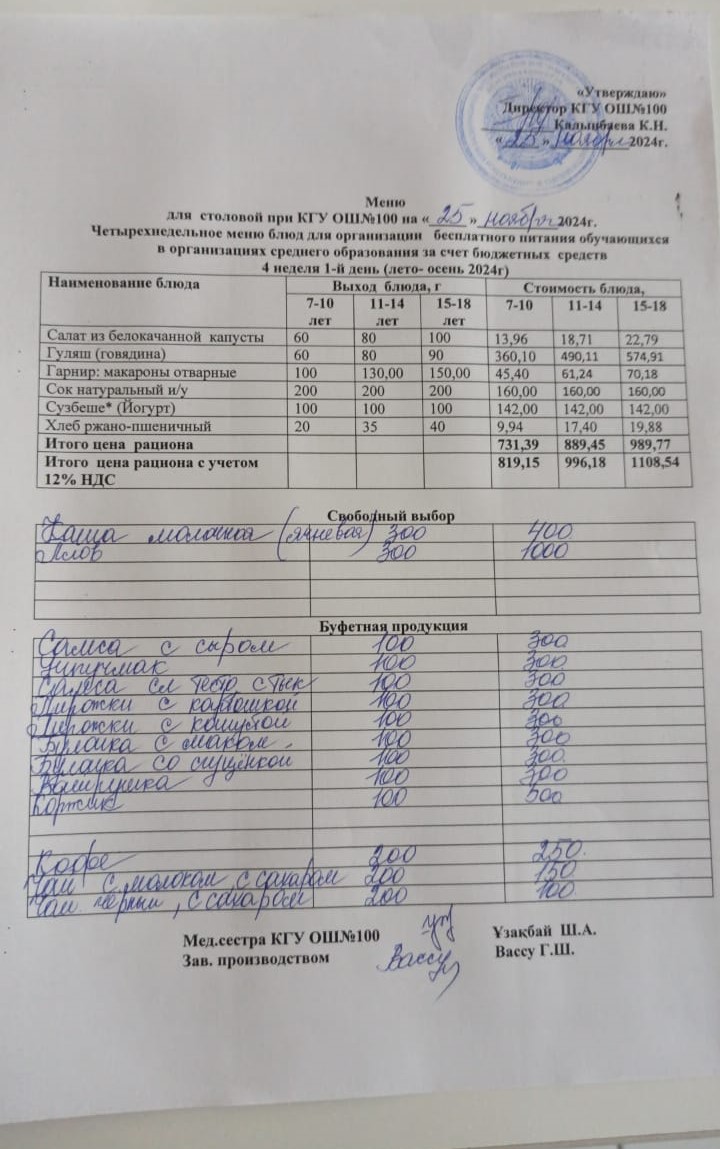 «Утверждаю»
Директор КГУ ОШ№100
Калынбаева К.Н.
«25» ноября 2024г.
Меню
для столовой при КГУ ОШ№100 на «25» ноября 2024г.
Четырехнедельное меню блюд для организации бесплатного питания обучающихся
в организациях среднего образования за счет бюджетных средств
4 неделя 1-й день (лето- осень 2024г)
Наименование блюда Выход блюда, г Стоимость блюда,
7-10 лет 11-14 лет 15-18 лет 7-10 11-14 15-18
Салат из белокачанной капусты 60 80 100 13,96 18,71 22,79
Гуляш (говядина) 60 80 90 360,10 490,11 574,91
Гарнир: макароны отварные 100 130,00 150,00 45,40 61,24 70,18
Сок натуральный и/у 200 200 200 160,00 160,00 160,00
Сузбеше* (Йогурт) 100 100 100 142,00 142,00 142,00
Хлеб ржано-пшеничный 20 35 40 9,94 17,40 19,88
Итого цена рациона 731,39 889,45 989,77
Итого цена рациона с учетом 819,15 996,18 1108,54
12% НДС
Свободный выбор
Каша молочная (ячневая) 300 400
Плов 300 1000
Буфетная продукция
Самса с сыром 100 300
Учпучмак 100 300
Самса сл тесто 100 300
Пирожки с картошкой 100 300
Пирожки с капустой 100 300
Булачка с маком 100 300
Булачка со сгущёнкой 100 300
100 300
Коржик 100 300
Кофе 200 250
Чай с молоком, с сахаром 200 150
Чай чёрный, с сахаром 200 100
Мед.сестра КГУ ОШ№100 Ұзақбай Ш.А.
Зав. производством Вассу Вассу Г.Ш.